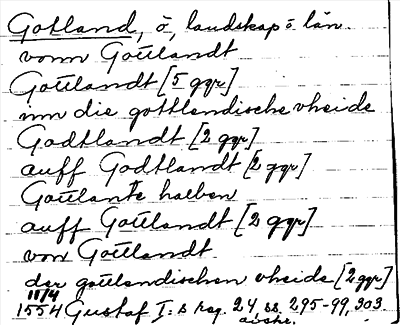 Gotland, ö, landskap o län.
vonn Gottlandt
Gottlandt [5 ggr]
inn die gottlendische vheide
Godtlandt [2 ggr]
auff Godtlandt [2 ggr]
Gottlantt halben
auff Gottlandt [2 ggr]
von Gottlandt
der gottlendischen vheide [2 ggr]
11/4
1554 Gustaf I:s reg. 24 ss. 295-99, 303
avskr.